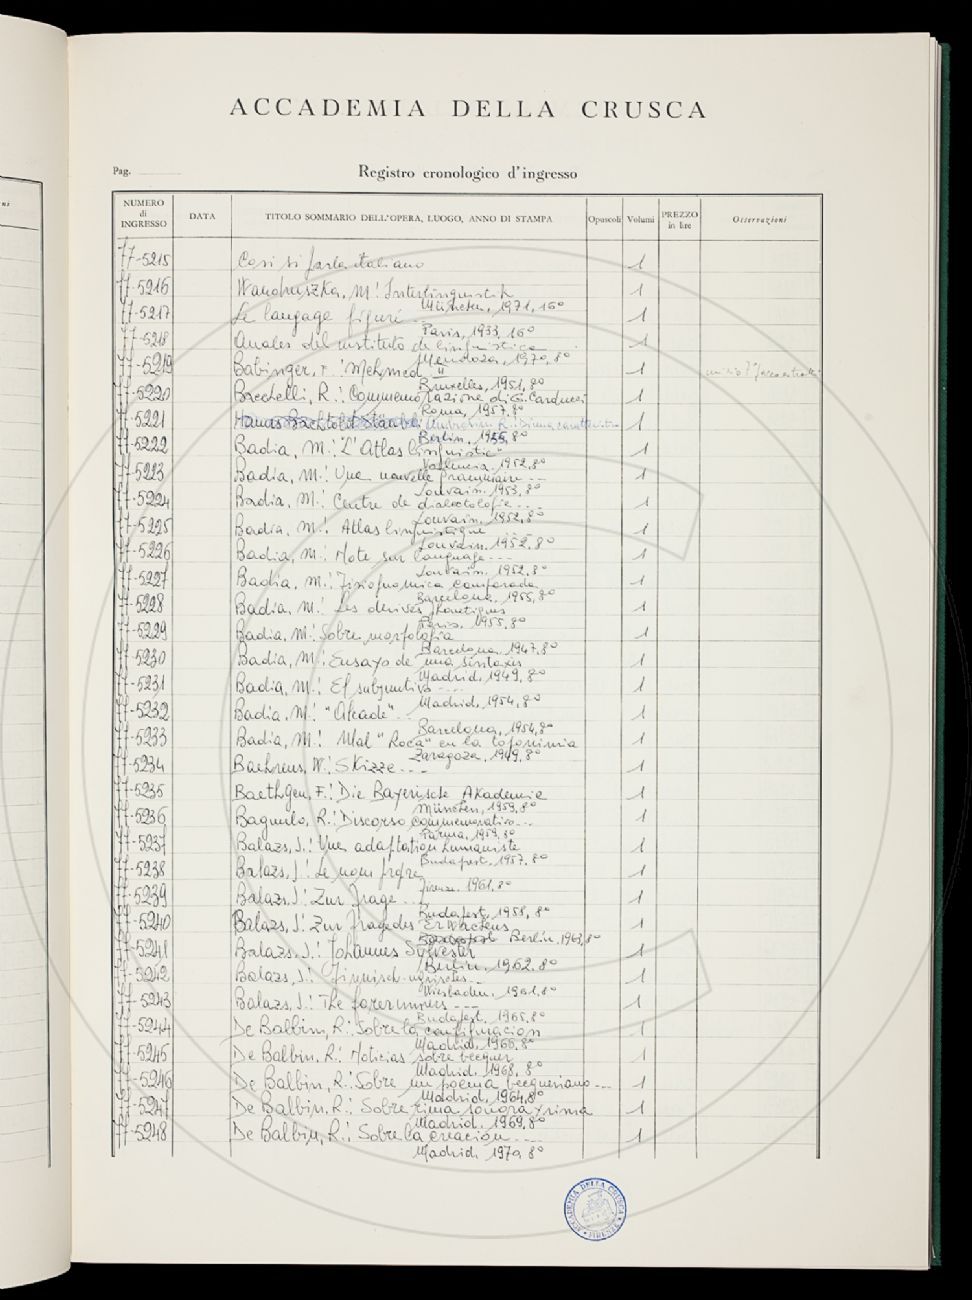 ni
ACCADEMIA DELLA CRUSCA
Pag.
Registro cronologico d'ingresso
NUMERO di INGRESSO DATA TITOLO SOMMARIO DELL'OPERA, LUOGO, ANNO DI STAMPA Opuscoli Volumi PREZZO in lire Osservazioni
77-5215 Così si parla italiano 1
77-5216 Wandruszka, M: Interlinguistik 1
München, 1971, 16°
77-5217 Le langage figuré 1
Paris, 1933, 16°
77-5218 Anales del instituto de linguistica 1
Mendoza, 1970, 8°
77-5219 Babinger, F.: Mehmed II 1
Bruxelles, 1951, 8°
77-5220 Bacchelli, R.: Commemorazione di G. Carducci 1
Roma, 1957, 8°
77-5221 1
Berlin, 1955, 8°
77-5222 Badia, M: "L'Atlas linguistic" 1
1952, 8°
77-5223 Badia, M: Une nouvelle --- 1
Louvain. 1953, 8°
77-5224 Badia, M: Centre de dialectologie... 1
Louvain. 1952, 8°
77-5225 Badia, M: Atlas linguistique ... 1
Louvain. 1952. 8°
77-5226 Badia, M: Note sur language --- 1
Louvain. 1952, 8°
77-5227 Badia, M: Fisiognomica comparada 1
Barcelona. 1955, 8°
77-5228 Badia, M: Les derivés phonetiques 1
Paris. 1955. 8°
77-5229 Badia, M: Sobre morfologia 1
Barcelona. 1947, 8°
77-5230 Badia, M: Ensayo de una sintaxis 1
Madrid. 1949, 8°
77-5231 Badia, M: El subjuntivo ---- 1
Madrid, 1954, 8°
77-5232 Badia, M: "Alcade" .. 1
Barcelona, 1954, 8°
77-5233 Badia, M: Mal "Roca" en la toponimia 1
Zaragoza, 1949, 8°
77-5234 Baehrens, W.: Skizze --- 1
77-5235 Baethgen, F.: Die Bayerische Akademie 1
München, 1959, 8°
77-5236 R.: Discorso commemorativo ... 1
Parma, 1959, 8°
77-5237 Balazs, J.: Une adaptation humaniste 1
Budapest, 1957. 8°
77-5238 Balazs, J: Le nom propre 1
Firenze. 1961. 8°
77-5239 Balazs, J: Zur Frage ... 1
Budapest, 1958, 8°
77-5240 Balazs, J: Zur Frage des Erwachens 1
Berlin, 1963, 8°
77-5241 Balazs, J.: Johannes Sylvester 1
Berlin, 1962. 8°
77-5242 Balazs, J: Finnisch-ugrisches... 1
Wiesbaden, 1961. 8°
77-5243 Balazs, J.: The forerunners --- 1
Budapest, 1965, 8°
77-5244 De Balbin, R.: Sobre la configuracion 1
Madrid, 1966, 8°
77-5245 De Balbin, R.: Noticias sobre becquer 1
Madrid, 1968, 8°
77-5246 De Balbin, R.: Sobre un poema becqueriano --- 1
Madrid, 1964, 8°
77-5247 De Balbin, R.: Sobre rima sonora y rima 1
Madrid, 1969, 8°
77-5248 De Balbin, R.: Sobre la creación ---- 1
Madrid, 1970, 8°
ACCADEMIA DELLA CRUSCA
FIRENZE